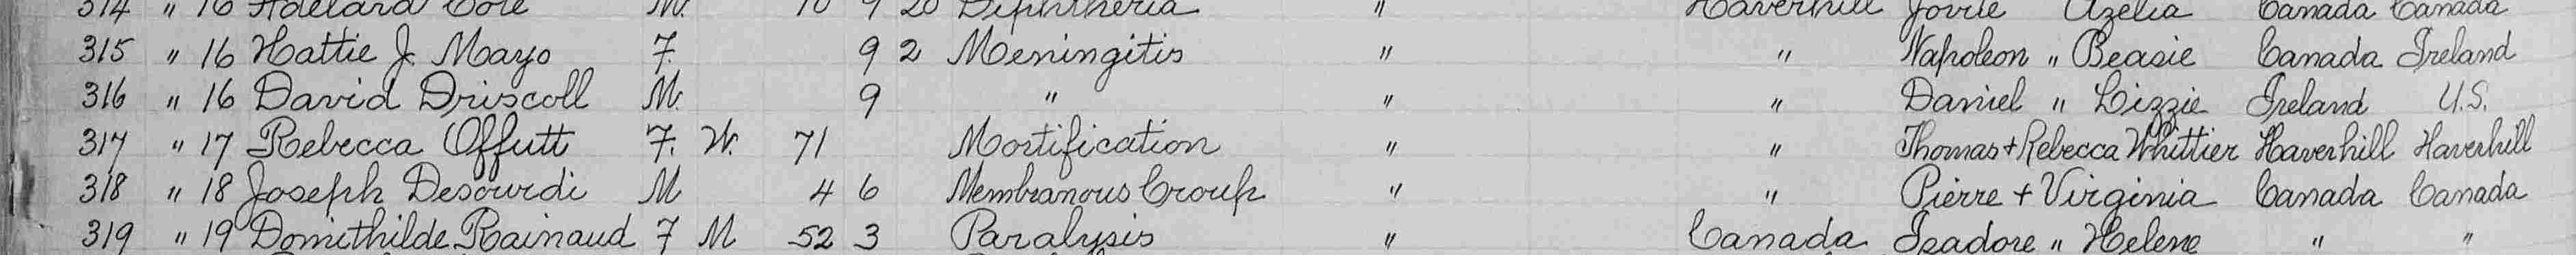 314 " 16 Adelard Cote M. 10 9 20 Diphtheria " Haverhill Jovite Azelia Canada Canada
315 " 16 Hattie J. Mayo F. 9 2 Meningitis " " Napoleon " Beasie Canada Ireland
316 " 16 David Driscoll M. 9 " " " Daniel " Lizzie Ireland U.S.
317 " 17 Rebecca Offutt F. W. 71 Mortification " " Thomas + Rebecca Whittier Haverhill Haverhill
318 " 18 Joseph Desourdi M 4 6 Membranous Croup " " Pierre + Virginia Canada Canada
319 " 19 Domithilde Rainaud F M 52 3 Paralysis " Canada Isadore " Helene " "